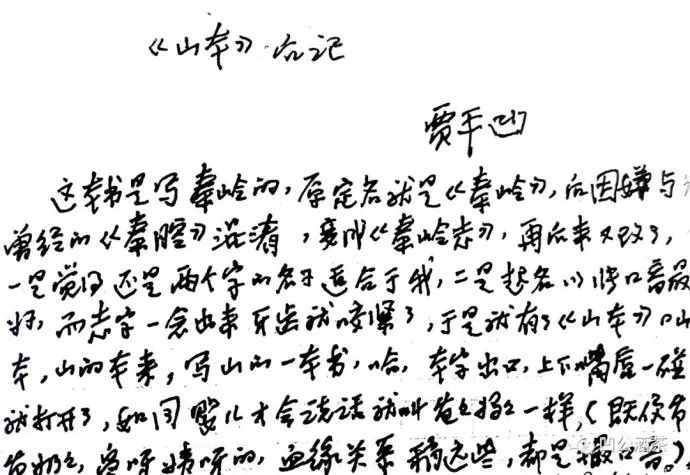 《山本》后记
贾平凹
这本书是写秦岭的，原定名就是《秦岭》，后因嫌与
曾经的《秦腔》混淆，变成《秦岭志》，再后来又改了，
一是觉得还是两个字的名子适合于我，二是起名以张口音最
好，而志字一念出来牙齿就咬紧了，于是就有了《山本》。山
本，山的本来，写山的一本书，哈，本字出口，上下嘴唇一碰
就打开了，如同婴儿才会说话就叫爸爸妈妈一样，（即便爷
爷奶奶，舅呀姨呀的，血缘关系稍远些，都是撮口音。）
凹公酒茶